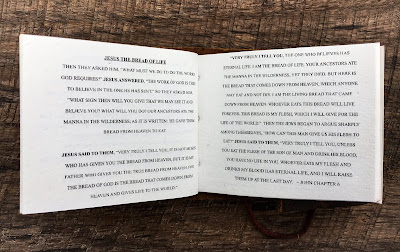 JESUS THE BREAD OF LIFE
THEN THEY ASKED HIM, "WHAT MUST WE DO TO DO THE WORK
GOD REQUIRES?" JESUS ANSWERED, "THE WORK OF GOD IS THIS:
TO BELIEVE IN THE ONE HE HAS SENT." SO THEY ASKED HIM,
"WHAT SIGN THEN WILL YOU GIVE THAT WE MAY SEE IT AND
BELIEVE YOU? WHAT WILL YOU DO? OUR ANCESTORS ATE THE
MANNA IN THE WILDERNESS; AS IT IS WRITTEN: 'HE GAVE THEM
BREAD FROM HEAVEN TO EAT.'
JESUS SAID TO THEM, "VERY TRULY I TELL YOU, IT IS NOT MOSES
WHO HAS GIVEN YOU THE BREAD FROM HEAVEN, BUT IT IS MY
FATHER WHO GIVES YOU THE TRUE BREAD FROM HEAVEN. FOR
THE BREAD OF GOD IS THE BREAD THAT COMES DOWN FROM
HEAVEN AND GIVES LIFE TO THE WORLD."
"VERY TRULY I TELL YOU, THE ONE WHO BELIEVES HAS
ETERNAL LIFE. I AM THE BREAD OF LIFE. YOUR ANCESTORS ATE
THE MANNA IN THE WILDERNESS, YET THEY DIED. BUT HERE IS
THE BREAD THAT COMES DOWN FROM HEAVEN, WHICH ANYONE
MAY EAT AND NOT DIE. I AM THE LIVING BREAD THAT CAME
DOWN FROM HEAVEN. WHOEVER EATS THIS BREAD WILL LIVE
FOREVER. THIS BREAD IS MY FLESH, WHICH I WILL GIVE FOR THE
LIFE OF THE WORLD." THEN THE JEWS BEGAN TO ARGUE SHARPLY
AMONG THEMSELVES, "HOW CAN THIS MAN GIVE US HIS FLESH TO
EAT?" JESUS SAID TO THEM, "VERY TRULY I TELL YOU, UNLESS
YOU EAT THE FLESH OF THE SON OF MAN AND DRINK HIS BLOOD,
YOU HAVE NO LIFE IN YOU. WHOEVER EATS MY FLESH AND
DRINKS MY BLOOD HAS ETERNAL LIFE, AND I WILL RAISE
THEM UP AT THE LAST DAY. ~ JOHN CHAPTER 6